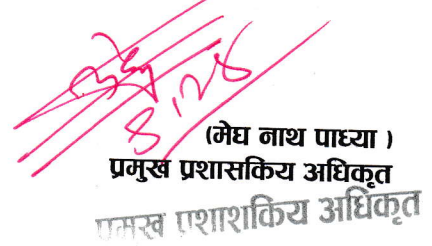 (मेघ नाथ पाध्या )
प्रमुख प्रशासकिय अधिकृत
प्रमुख प्रशाशकिय अधिकृत